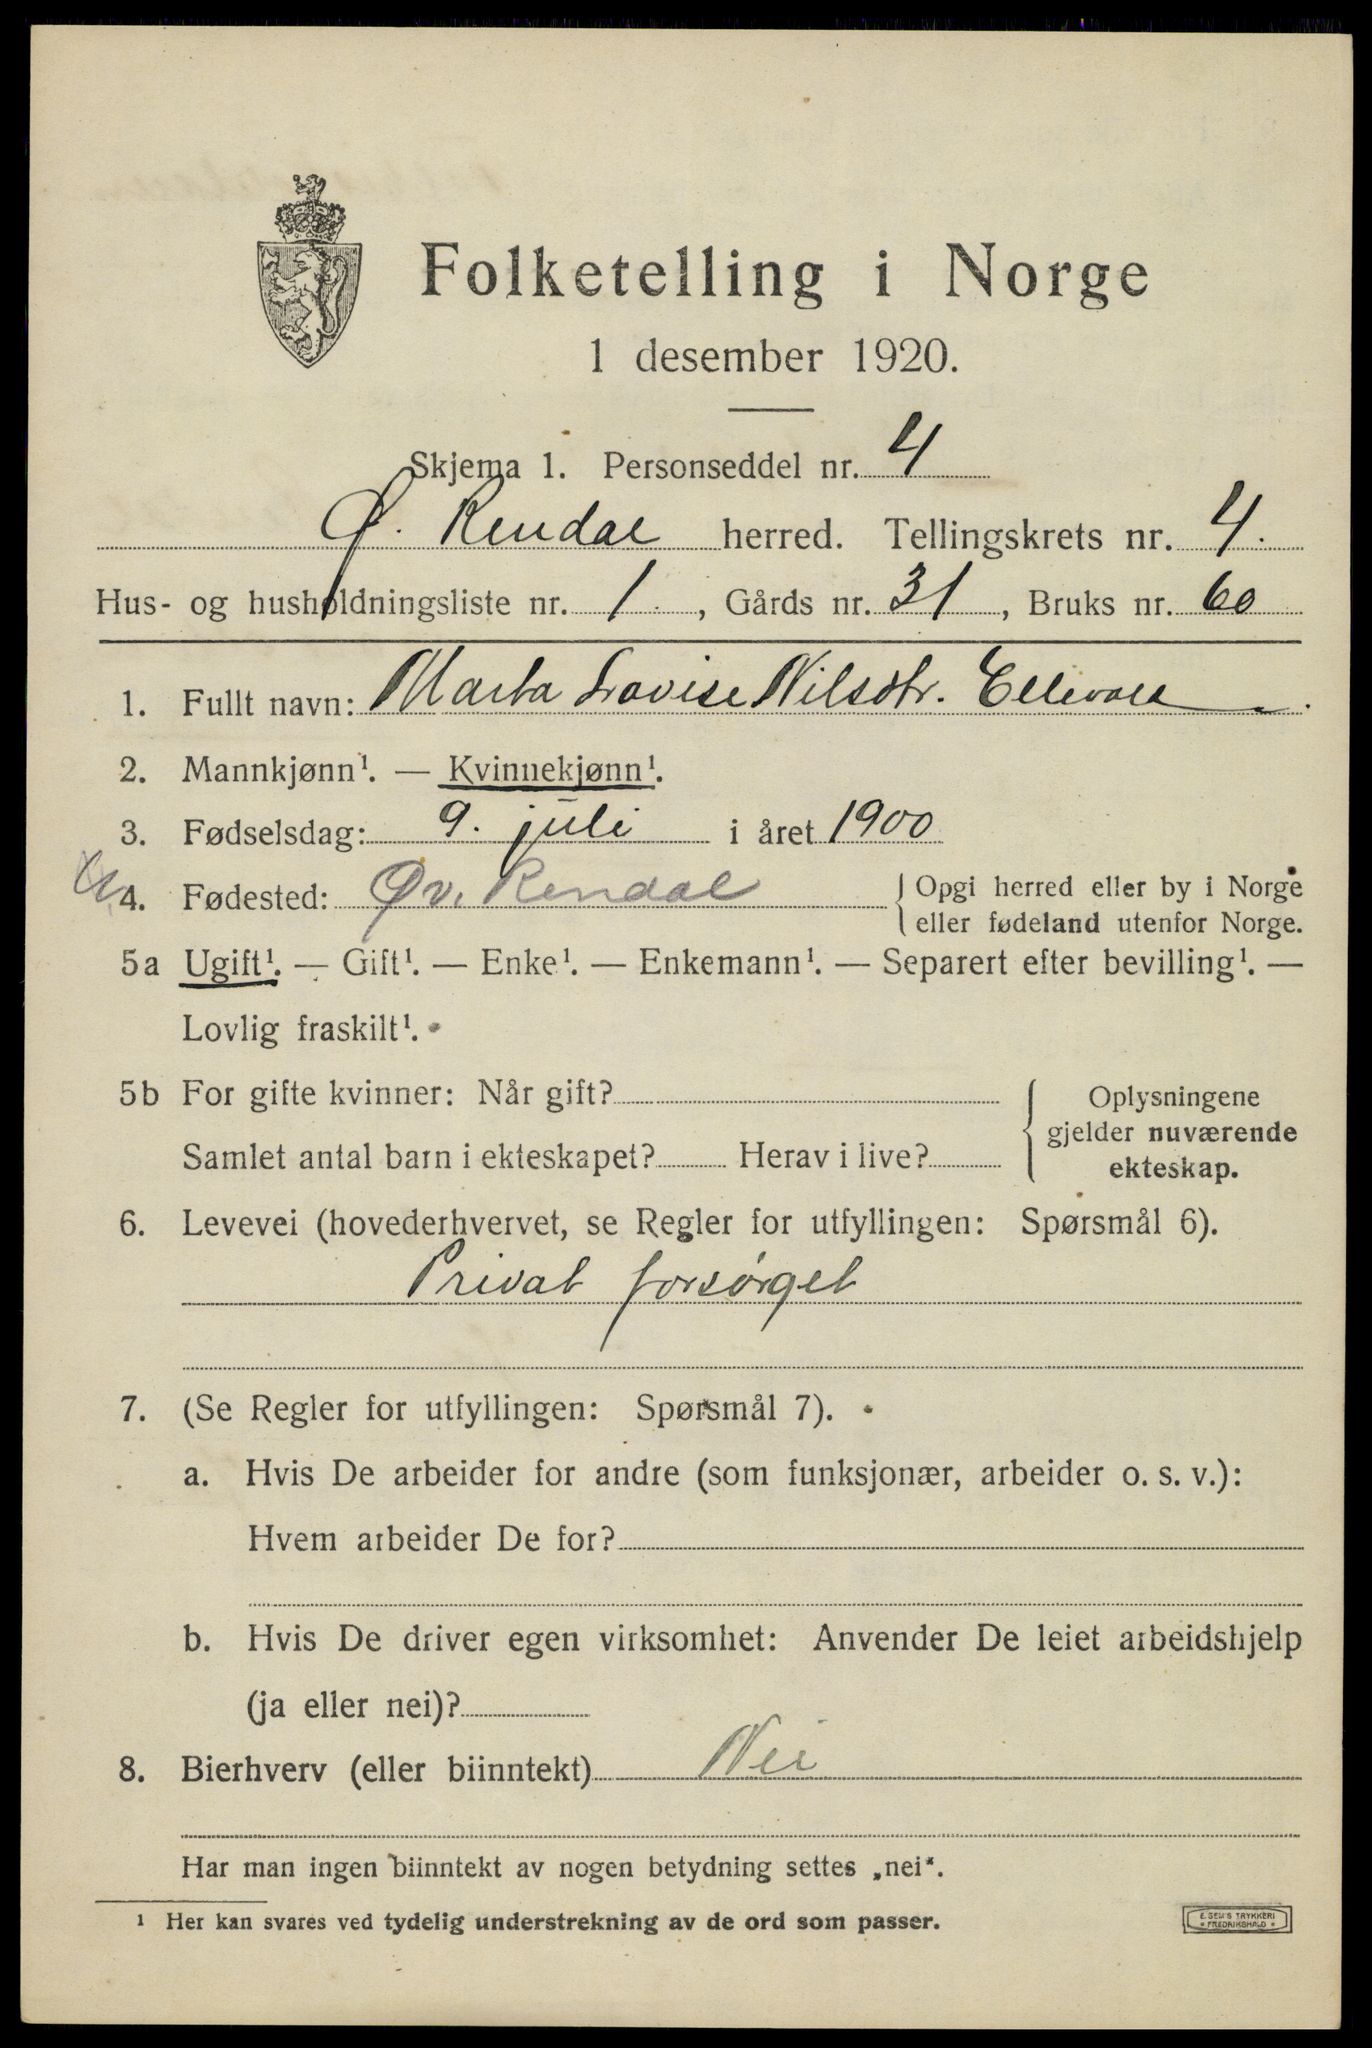 Folketelling i Norge
1 desember 1920.
Skjema 1. Personseddel nr. 4
Ø. Rendal herred. Tellingskrets nr. 4.
Hus- og husholdningsliste nr. 1, Gårds nr. 31, Bruks nr. 60
1. Fullt navn: Marta Lovise Nilsdtr.
2. Mannkjønn¹. — Kvinnekjønn¹.
3. Fødselsdag: 9. juli i året 1900
4. Fødested: Øv. Rendal { Opgi herred eller by i Norge
eller fødeland utenfor Norge.
5a Ugift¹. — Gift¹. — Enke¹. — Enkemann¹. — Separert efter bevilling¹. —
Lovlig fraskilt¹.
5b For gifte kvinner: Når gift? { Oplysningene
gjelder nuværende
Samlet antal barn i ekteskapet? Herav i live?
ekteskap.
6. Levevei (hovederhvervet, se Regler for utfyllingen: Spørsmål 6).
Privat forsørget
7. (Se Regler for utfyllingen: Spørsmål 7).
a. Hvis De arbeider for andre (som funksjonær, arbeider o. s. v.):
Hvem arbeider De for?
b. Hvis De driver egen virksomhet: Anvender De leiet arbeidshjelp
(ja eller nei)?
8. Bierhverv (eller biinntekt) Nei
Har man ingen biinntekt av nogen betydning settes „nei“.
¹ Her kan svares ved tydelig understrekning av de ord som passer.
E. SEM'S TRYKKERI
FREDRIKSHALD